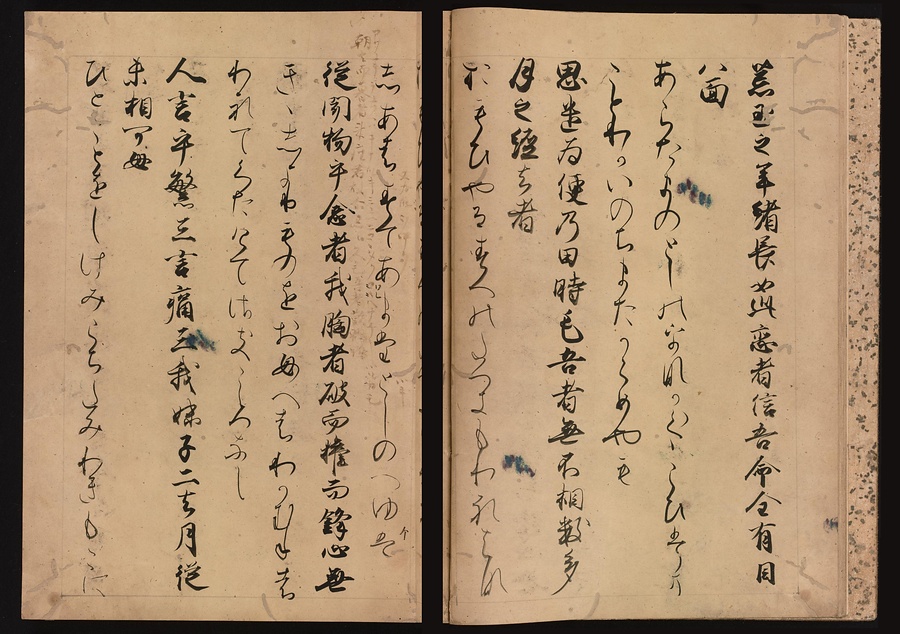 荒玉之年緒長如此戀者信吾命全有目
八面
あらたまのとしのをなかくかくこひはま
ことわかいのちまたからめやも
思遣為便乃田時毛吾者無不相數多
月之經去者
おもひやるすへのたつきもわれはな
しあはすてあまたとしのへゆは
従聞物乎念者我胸者破而摧而鋒心無
きゝしよりものをおもへはわかむねは
われてくたけて こゝろなし
人言乎繁三言痛三我妹子二去月従
未相可母
ひとことをしけみこちたみわきもこに